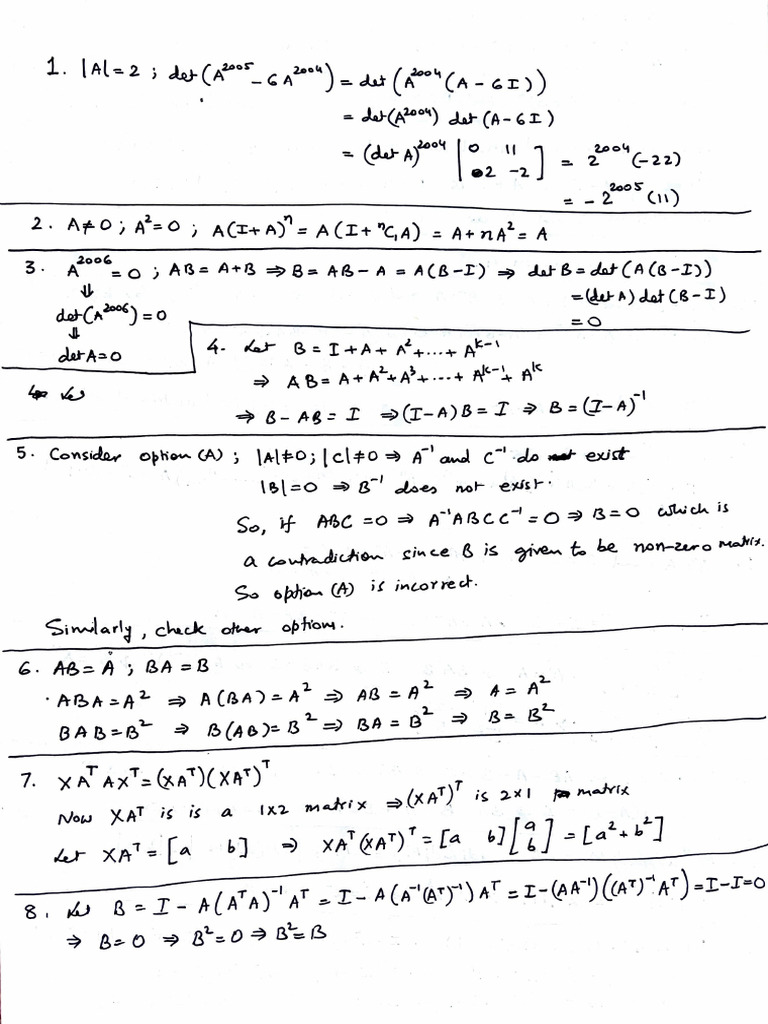 1. |A|=2 ; det(A²⁰⁰⁵ - 6A²⁰⁰⁴) = det(A²⁰⁰⁴(A - 6I))
= det(A²⁰⁰⁴) det(A-6I)
= (det A)²⁰⁰⁴ | 0 11 ; 2 -2 ] = 2²⁰⁰⁴(-22)
= -2²⁰⁰⁵(11)
2. A≠0 ; A²=0 ; A(I+A)ⁿ = A(I+ⁿC₁A) = A+nA² = A
3. A²⁰⁰⁶=0 ; AB=A+B ⇒ B=AB-A = A(B-I) ⇒ det B=det(A(B-I))
⇓
det(A²⁰⁰⁶)=0
⇓
det A=0
=(det A) det(B-I)
=0
4. Let B=I+A+A²+...+A^(k-1)
⇒ AB=A+A²+A³+...+A^(k-1)+A^k
⇒ B-AB=I ⇒(I-A)B=I ⇒ B=(I-A)⁻¹
5. Consider option (A) ; |A|≠0 ; |C|≠0 ⇒ A⁻¹ and C⁻¹ do exist
|B|=0 ⇒ B⁻¹ does not exist.
So, if ABC=0 ⇒ A⁻¹ABCC⁻¹=0 ⇒ B=0 which is
a contradiction since B is given to be non-zero matrix.
So option (A) is incorrect.
Similarly, check other options.
6. AB=A ; BA=B
ABA=A² ⇒ A(BA)=A² ⇒ AB=A² ⇒ A=A²
BAB=B² ⇒ B(AB)=B² ⇒ BA=B² ⇒ B=B²
7. XAᵀAXᵀ=(XAᵀ)(XAᵀ)ᵀ
Now XAᵀ is is a 1x2 matrix ⇒(XAᵀ)ᵀ is 2x1 matrix
Let XAᵀ=[a b] ⇒ XAᵀ(XAᵀ)ᵀ=[a b][a ; b]=[a²+b²]
8. Let B=I-A(AᵀA)⁻¹Aᵀ=I-A(A⁻¹(Aᵀ)⁻¹)Aᵀ=I-(AA⁻¹)((Aᵀ)⁻¹Aᵀ)=I-I=0
⇒ B=0 ⇒ B²=0 ⇒ B²=B